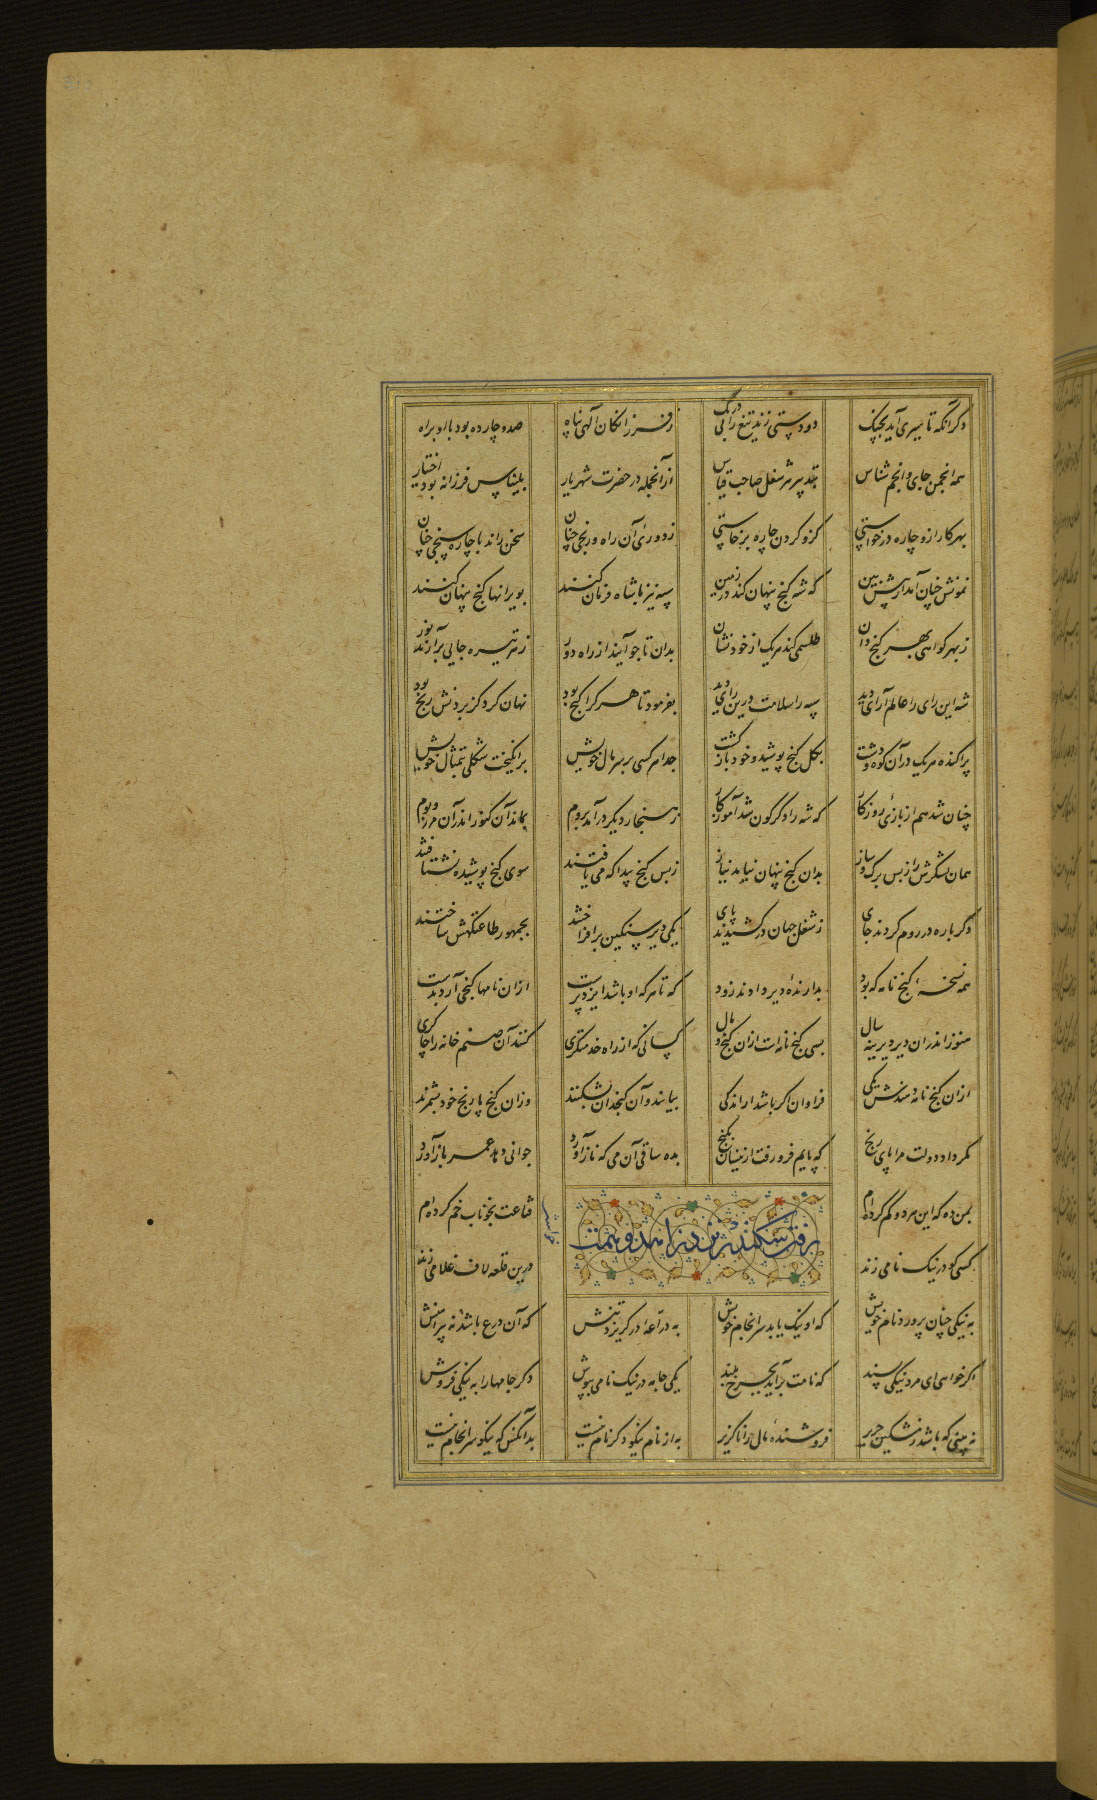 دگر آنکه تا سیری آید بجنگ دو دستی زند تیغ را بی درنگ ز فرزانگان الهی پناه صد و چارده بود با او براه
همه انجمن جای و انجم شناس بتدبیر هر شغل صاحب قیاس از آنجمله در حضرت شهریار بلیناس فرزانه بود اختیار
بهر کار ازو چاره درخواستی کزو کردن چاره برخاستی ز دوری آن راه و رنجی چنان سخن راند با چاره سنجی چنان
نمونش چنان آمد از پیش بین که شه گنج پنهان کند در زمین سپه نیز با شاه فرمان کنند بویرانها گنج پنهان کنند
ز بهر گواهی بهر گنج دان طلسمی کند هر یک از خود نشان بدان تا چو آیند از راه دور ز هر تیره جایی برآرند نور
شه این رای را عالم آرای دید سپه را سلامت درین رای دید بفرمود تا هر کرا گنج بود نهان کرد کز بردنش رنج بود
پراکنده هر یک در آن کوه و دشت بگل گنج پوشید و خود بازگشت جدا هر کسی بر سر مال خویش برانگیخت شکلی تمثال خویش
چنان شد هم از بازی روزگار که شه را دگرگون شد آموزگار ز هنجار دیگر درآمد بروم بماند آن کنوز اندر آن مرز و بوم
همان لشکرش را ز بس برگ و ساز بدان گنج پنهان نیامد نیاز ز بس گنج پیدا که می یافتند سوی گنج پوشیده نشتافتند
دگر باره در روم کردند جای ز شغل جهان درکشیدند پای یکی دیر سنگین برافراختند بجمهور طاعتگهش ساختند
همه نسخه گنج نامه که بود بدارنده دیر دادند زود که تا هر که او باشد ایزد پرست از ان نامها گنجی آرد بدست
هنوز اندران دیر دیرینه سال بسی گنج نامه است از ان گنج و مال کسانی که از راه خدمتگری کنند آن صنم خانه را چاکری
از ان گنج نامه دهندش یکی فراوان گر باشد ار اندکی بیایند و آن گنجدان بشکنند وزان گنج پا رنج خود بشمرند
مگر داد دولت مرا پای رنج که پایم فرو رفت از ینسان بگنج بده ساقی آن می که ناز آورد جوانی دهد عمر باز آورد
بمن ده که این هر دو گم کرده ام قناعت بخوناب خم کرده ام
رفتن سکندر بدز زاهد و همت خواستن
کسی کو در نیک نامی زند درین قلعه لاف غلامی زند
به نیکی چنان پرورد نام خویش که او نیک یابد سرانجام خویش به دراعه در گریزد تنش که آن درع باشد نه پیراهنش
اگر خواهی ای مرد نیکی پسند که نامت برآید بچرخ بلند یکی جامه در نیک نامی بپوش دگر جامها را به نیکی فروش
نه بینی که باشد ز مشکین حریر فروشنده مال را ناگزیر به از نام نیکو دگر نام نیست بد آنکس که نیکو سرانجام نیست